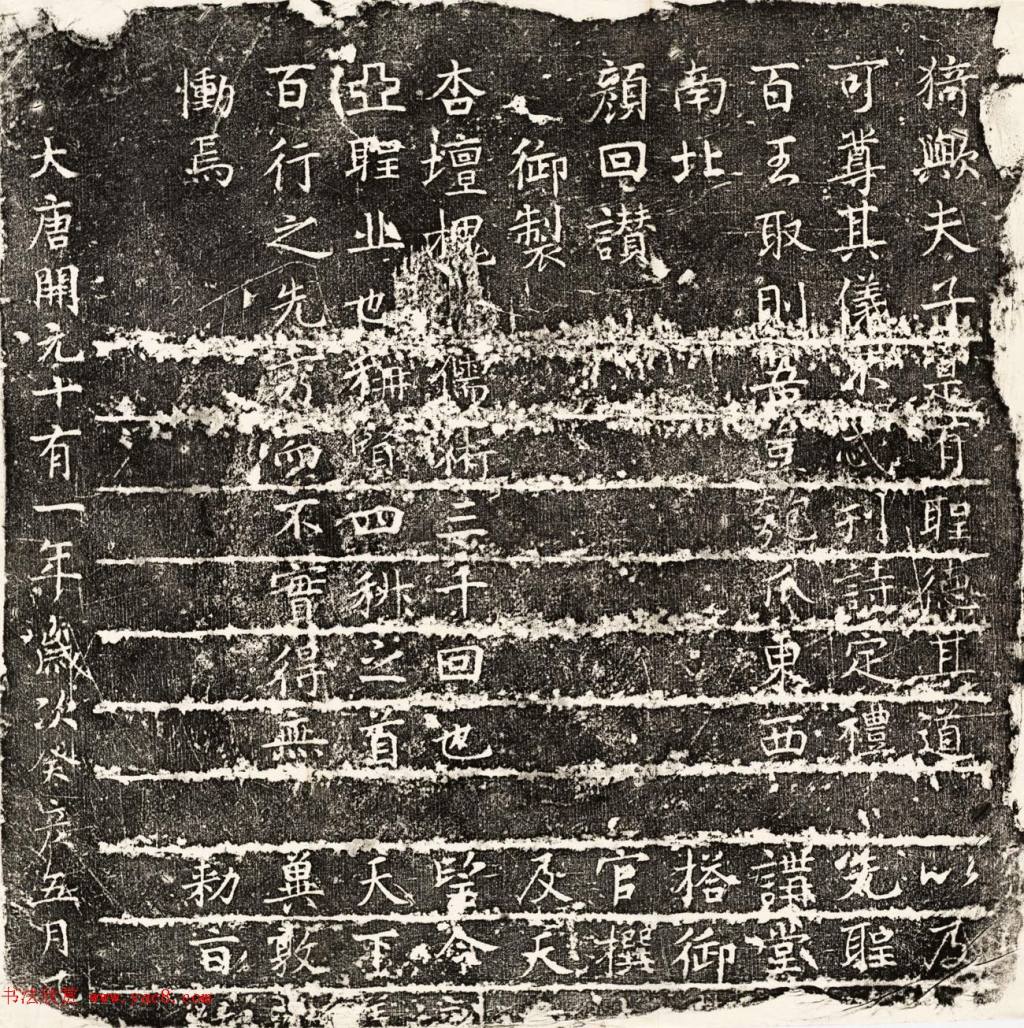 猗歟夫子寔有聖德其道
可尊其儀不忒刋詩定禮
百王取則吾豈匏瓜東西
南北
顔回讃
御製
杏壇槐 儒術三千回也
亞聖丘也稱賢四科之首
百行之先秀而不實得無
慟焉
以及
先聖
講堂
搭御
官撰
及天
望令
天
冀敦
勅旨
大唐開元十有一年歲次癸亥五月
书法欣赏 www.yac8.com